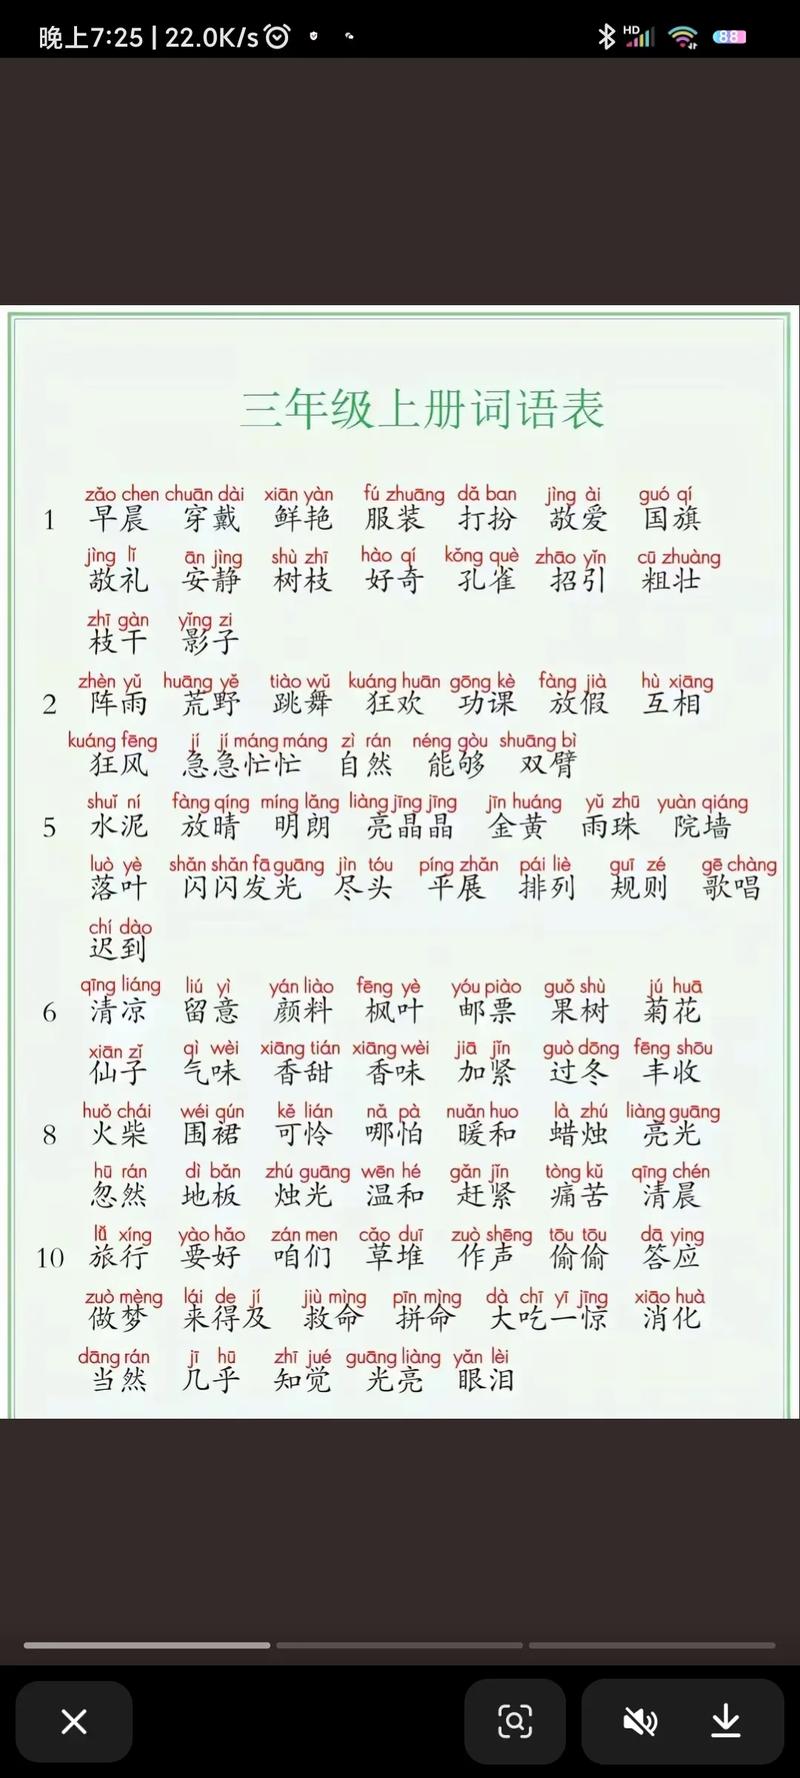 晚上7:25 | 22.0K/s
HD
88
三年级上册词语表
zǎo chen chuān dài xiān yàn fú zhuāng dǎ ban jìng ài guó qí
1 早晨 穿戴 鲜艳 服装 打扮 敬爱 国旗
jìng lǐ ān jìng shù zhī hào qí kǒng què zhāo yǐn cū zhuàng
敬礼 安静 树枝 好奇 孔雀 招引 粗壮
zhī gàn yǐng zi
枝干 影子
zhèn yǔ huāng yě tiào wǔ kuáng huān gōng kè fàng jià hù xiāng
2 阵雨 荒野 跳舞 狂欢 功课 放假 互相
kuáng fēng jí jí máng máng zì rán néng gòu shuāng bì
狂风 急急忙忙 自然 能够 双臂
shuǐ ní fàng qíng míng lǎng liàng jīng jīng jīn huáng yǔ zhū yuàn qiáng
5 水泥 放晴 明朗 亮晶晶 金黄 雨珠 院墙
luò yè shǎn shǎn fā guāng jìn tóu píng zhǎn pái liè guī zé gē chàng
落叶 闪闪发光 尽头 平展 排列 规则 歌唱
chí dào
迟到
qīng liáng liú yì yán liào fēng yè yóu piào guǒ shù jú huā
6 清凉 留意 颜料 枫叶 邮票 果树 菊花
xiān zǐ qì wèi xiāng tián xiāng wèi jiā jǐn guò dōng fēng shōu
仙子 气味 香甜 香味 加紧 过冬 丰收
huǒ chái wéi qún kě lián nǎ pà nuǎn huo là zhú liàng guāng
8 火柴 围裙 可怜 哪怕 暖和 蜡烛 亮光
hū rán dì bǎn zhú guāng wēn hé gǎn jǐn tòng kǔ qīng chén
忽然 地板 烛光 温和 赶紧 痛苦 清晨
lǚ xíng yào hǎo zán men cǎo duī zuò shēng tōu tōu dā ying
10 旅行 要好 咱们 草堆 作声 偷偷 答应
zuò mèng lái de jí jiù mìng pīn mìng dà chī yī jīng xiāo huà
做梦 来得及 救命 拼命 大吃一惊 消化
dāng rán jī hū zhī jué guāng liàng yǎn lèi
当然 几乎 知觉 光亮 眼泪